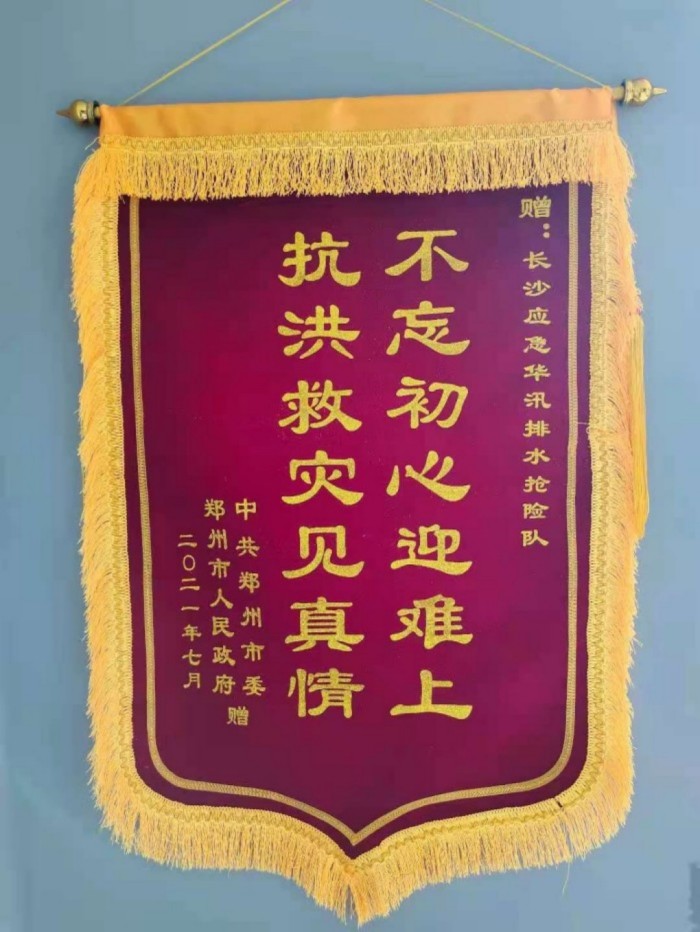 赠：长沙应急华汛排水抢险队
不忘初心迎难上
抗洪救灾见真情
中共郑州市委
郑州市人民政府
赠
二〇二一年七月